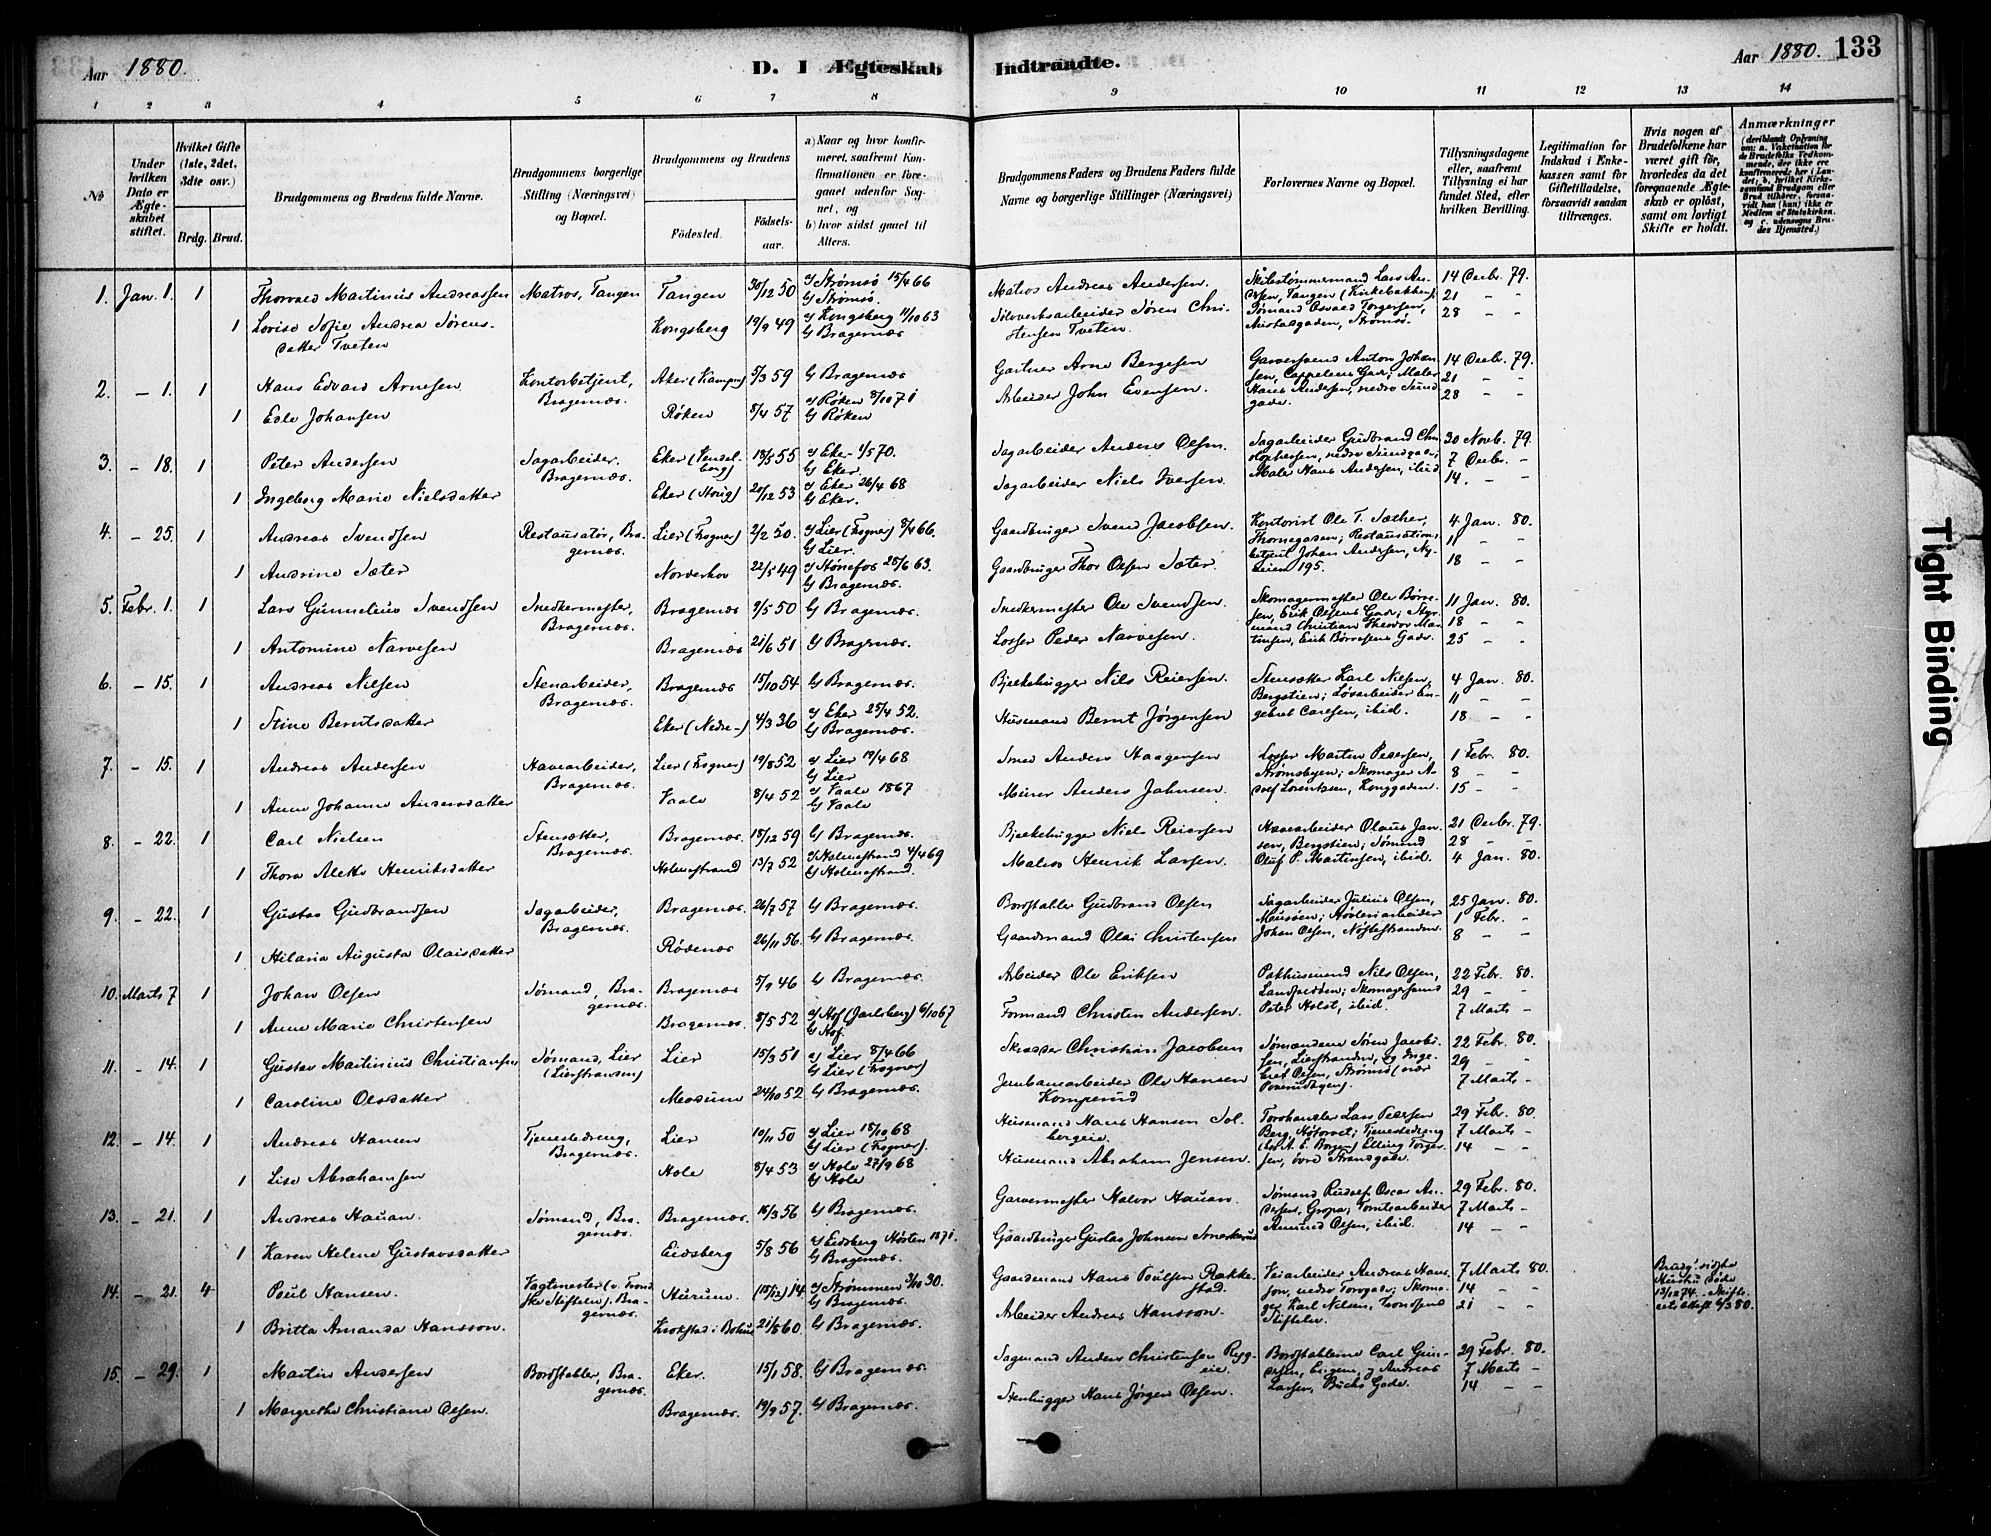 Aar 1880.
D. I Ægteskab Indtraadte.
Aar 1880. 133
1 2 3 4 5 6 7 8 9 10 11 12 13 14
№
Under hvilken Dato er Ægteskabet stiftet.
Hvilket Gifte (1ste, 2det, 3die osv.)
Brdg. Brud.
Brudgommens og Brudens fulde Navne.
Brudgommens borgerlige Stilling (Næringsvei) og Bopæl.
Brudgommens og Brudens
Fødested.
Fødselsaar.
a) Naar og hvor konfirmeret, saafremt Konfirmationen er foregaaet udenfor Sognet, og
b) hvor sidst gaaet til Alters.
Brudgommens Faders og Brudens Faders fulde Navne og borgerlige Stillinger (Næringsvei)
Forlovernes Navne og Bopæl.
Tillysningsdagene eller, saafremt Tillysning ei har fundet Sted, efter hvilken Bevilling.
Legitimation for Indskud i Enkekassen samt for Giftetilladelse, forsaavidt saadan tiltrænges.
Hvis nogen af Brudefolkene har været gift før, hvorledes da det foregaaende Ægteskab er opløst, samt om lovligt Skifte er holdt.
Anmærkninger
1. Jan. 1. 1 Thorvald Martinius Andreassen Matros, Tangen Tangen 30/12 50 a) Strømsø 15/4 66 b) Strømsø. Matros Andreas Andersen. 14 Decbr. 79.
1 Lovise Sofie Andrea Sørensdatter Tveten Kongsberg 19/9 49 a) Kongsberg 11/10 63 b) Bragernæs Sølverksarbeider Søren Christensen Tveten. 21 - - 28 - -
2. - 1. 1 Hans Edvard Arnesen Kontorbetjent, Bragernæs. Aker (Kampen) 5/3 59 b) Bragernæs Gartner Arne Bergesen 14 Decbr. 79.
1 Edle Johansen Røken 8/4 57 a) Røken 8/10 71 b) Røken Arbeider John Evensen. 21 - - 28 - -
3. - 18. 1 Peter Andersen Sagarbeider, Bragernæs. Eker 18/5 55 a) Eker 1/5 70. b) Eker. Sagarbeider Anders Olsen 30 Novb. 79.
1 Ingeborg Marie Nielsdatter Eker 20/12 53 a) Eker 26/4 68 b) Eker. Sagarbeider Niels Iversen. Maler Hans Andersen, ibid 7 Decbr. - 14. - -
4. - 25. 1 Andreas Svendsen Restauratør, Bragernæs. Lier (Frogner) 2/2 50. a) Lier (Frogner) 8/4 66. b) Lier. Gaardbruger Svend Jacobsen. Kontorist Ole T. Sæther, 4 Jan. 80.
1 Andrine Sæter Norderhov 22/5 49 a) Hønefos 25/6 63. b) Bragernæs. Gaardbruger Thor Olsen Sæter. 11 - - 18 - -
5. Febr. 1. 1 Lars Gunnelius Svendsen Snedkermester, Bragernæs. Bragernæs 9/5 50 b) Bragernæs. Snedkermester Ole Svendsen. 11 Jan. 80.
1 Antomine Narvesen Bragernæs 21/6 51 b) Bragernæs. Losser Peder Narvesen. 18 - - 25 - -
6. - 15. 1 Andreas Nilsen Stenarbeider, Bragernæs. Bragernæs 15/10 54 b) Bragernæs. Bjelkehugger Nils Reiersen. Stensætter Karl Nielsen, Bergstien; 4 Jan. 80.
1 Stine Berntsdatter Eker (Nedre-) 4/3 36 a) Eker 25/4 52. b) Bragernæs. Husmand Bernt Jørgensen 11 - - 18 - -
7. - 15. 1 Andreas Andersen Havearbeider, Bragernæs. Lier (Frogner) 19/8 52 a) Lier 19/4 68 b) Lier Smed Anders Haagensen Losser Martin Pedersen, 1 Febr. 80.
1 Anne Johanne Andersdatter Vaale 8/4 52 a) Vaale 1867 b) Vaale Murer Anders Jahnsen. 8 - - 15 - -
8. - 22. 1 Carl Nielsen Stensætter, Bragernæs. Bragernæs. 18/12 59 b) Bragernæs. Bjelkehugger Niels Reiersen Havearbeider Olaus Jansen, Bergstien; Sømand 21 Decbr. 79.
1 Thora Alette Henriksdatter Holmestrand 13/7 52 a) Holmestrand 4/4 69 b) Holmestrand. Matros Henrik Larsen. Oluf P. Martinsen, ibid. 28 - - 4 Jan. 80.
9. - 22. 1 Gustav Gudbrandsen Sagarbeider, Bragernæs. Bragernæs. 26/7 57 b) Bragernæs. Bordstabler Gudbrand Olsen Sagarbeider Julius Olsen, 25 Jan. 80.
1 Hilaria Augusta Olaisdatter Rødenæs 26/11 56. b) Bragernæs. Gaardmand Olai Christensen Johan Olsen, 1 Febr. - 8 - -
10. Marts 7 1 Johan Olsen Sømand, Bragernæs. Bragernæs 5/9 46 b) Bragernæs. Arbeider Ole Eriksen Pakhusmand Nils Olsen, 22 Febr. 80.
1 Anne Marie Christensen Bragernæs. 8/5 52 a) Hof (Jarlsberg) 6/10 67 b) Hof Formand Christen Andersen. Peter Holst, ibid. 29 - - 7 Marts -
11. - 14. 1 Gustav Martinius Christiansen Sømand, Lier (Lierstranden) Lier 15/3 51 a) Lier 8/4 66 b) Lier (Frogner) Skrædder Christian Jacobsen Sømændene Søren Jacobsen, Lierstranden, 22 Febr. 80.
1 Caroline Olsdatter Modum 24/10 52 b) Bragernæs. Jernbanearbeider Ole Hansen Komperud 29 - - 7 Marts -
12. - 14. 1 Andreas Hansen Tjenestedreng, Bragernæs. Lier 10/11 50 a) Lier 18/10 68 b) Lier (Frogner). Husmand Hans Hansen Solbergeie. Lars Pedersen Berg, Høtorvet; Tjenestedreng 29 Febr. 80.
1 Lise Abrahamsen Hole 8/4 53 a) Hole 27/9 68 b) Hole Husmand Abraham Jensen. Elling Torgersen, øvre Strandgade. 7 Marts - 14 - -
13. - 21. 1 Andreas Hauan. Sømand, Bragernæs. Bragernæs. 16/3 56 b) Bragernæs. Garvermester Halvor Hauan. Sømand Rudolf Oscar Andersen, 29 Febr. 80.
1 Karen Helene Gustavsdatter Eidsberg 5/8 56 a) Eidsberg Høsten 1871. b) Bragernæs. Gaardbruger Gustav Johnsen Amund Olsen, ibid. 7 Marts - 14 - -
14. - 21. 4 Poul Hansen. Vagtmester Bragernæs. Hurum. (15/12) 14 a) Strømmen 3/10 30. b) Bragernæs. Gaardmand Hans Poulsen Rakkestad. Veiarbeider Andreas Hansen, nedre Torvgade; 7 Marts 80.
1 Britta Amanda Hansson. Krokstad i Bohus 21/8 60. b) Bragernæs. Arbeider Andreas Hansson. Karl Nielsen, Stiftelse. 14 - - 21 - -
15. - 29. 1 Martin Andersen Bordstabler, Bragernæs. Eker. 15/1 58. b) Bragernæs. Sagmand Anders Christensen Ryggeie. Bordstablerne Carl Gundersen, 29 Febr. 80.
1 Margrethe Christiane Olsen. Bragernæs. 19/9 57. b) Bragernæs. Stenhugger Hans Jørgen Olsen. Larsen, Buchs Gade. 7 Marts - 14 - -
Tight Binding